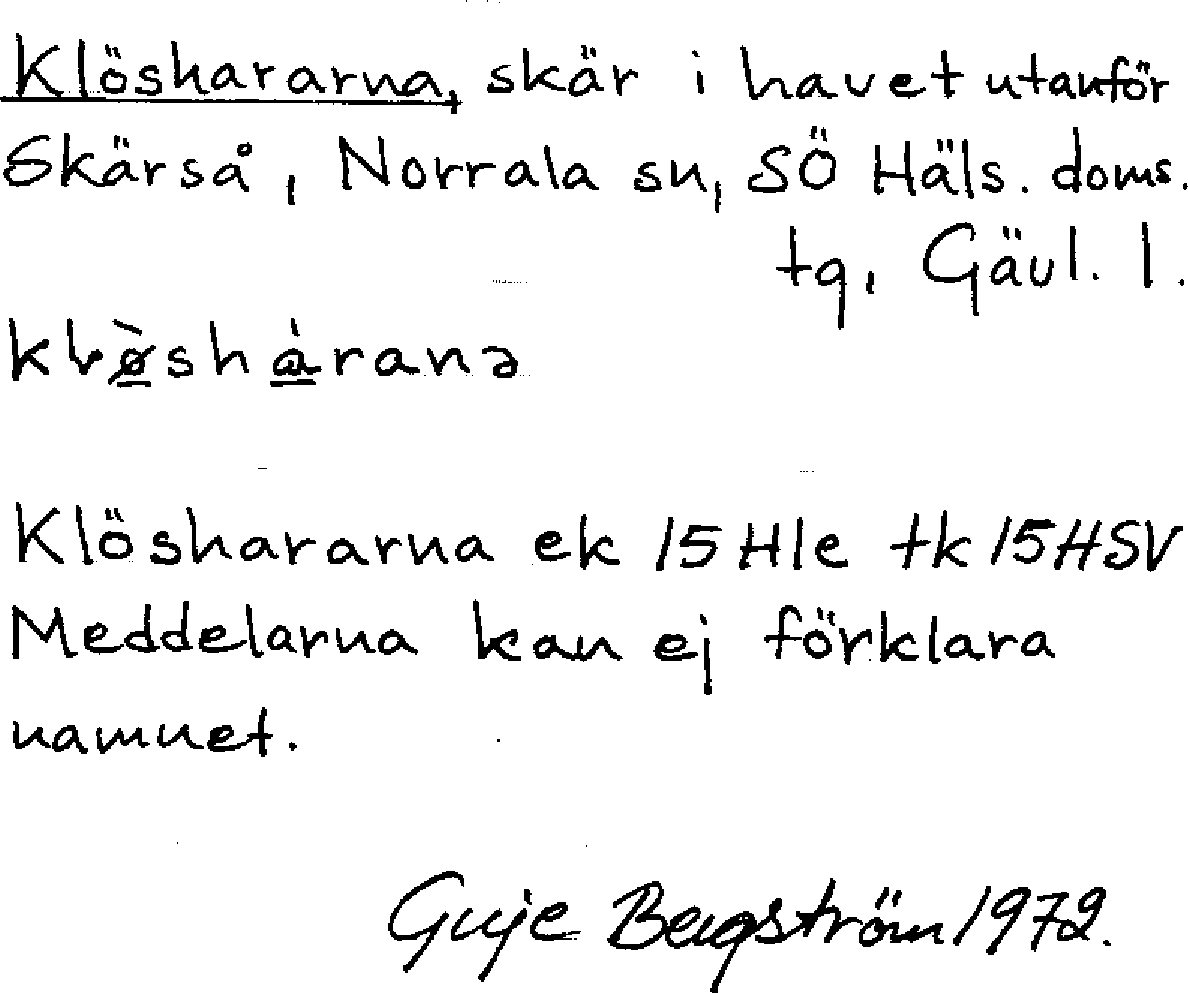 Klöshararna, skär i havet utanför
Skärså, Norrala sn, SÖ Häls. doms.
tg, Gävl. l.
Klöshararna ek 15 Hle tk 15 HSV
Meddelarna kan ej förklara
namnet.
Guje Bergström 1972.